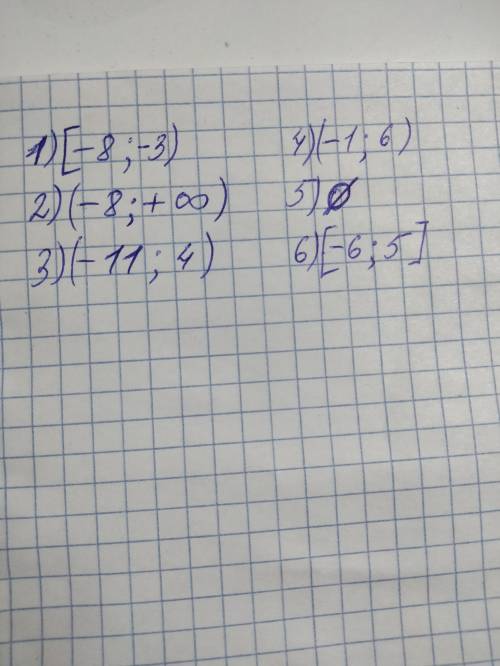 1) [-8 ; -3)
2) (-8 ; + ∞)
3) (-11 ; 4)
4) (-1 ; 6)
5) ∅
6) [-6 ; 5]